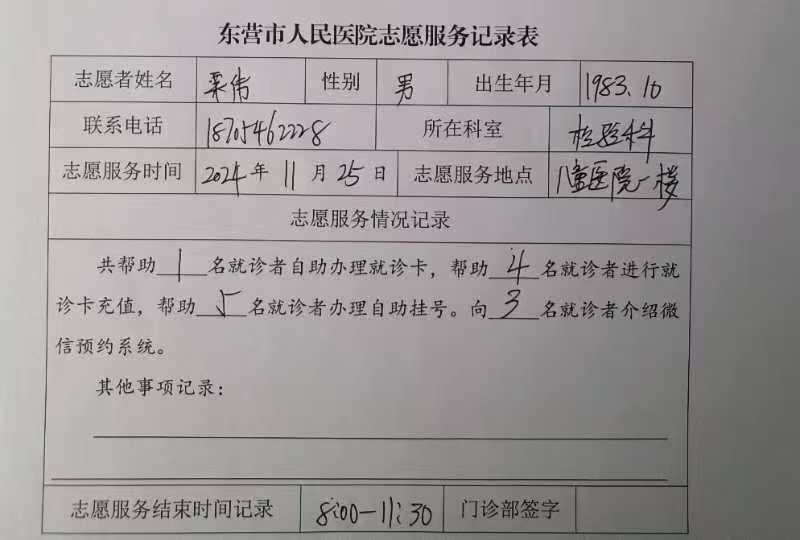 东营市人民医院志愿服务记录表
志愿者姓名 栾伟 性别 男 出生年月 1983.10
联系电话 18705462228 所在科室 检验科
志愿服务时间 2024年 11月25日 志愿服务地点 儿童医院一楼
志愿服务情况记录
共帮助1名就诊者自助办理就诊卡，帮助4名就诊者进行就
诊卡充值，帮助5名就诊者办理自助挂号。向3名就诊者介绍微
信预约系统。
其他事项记录：
志愿服务结束时间记录 8:00-11:30 门诊部签字